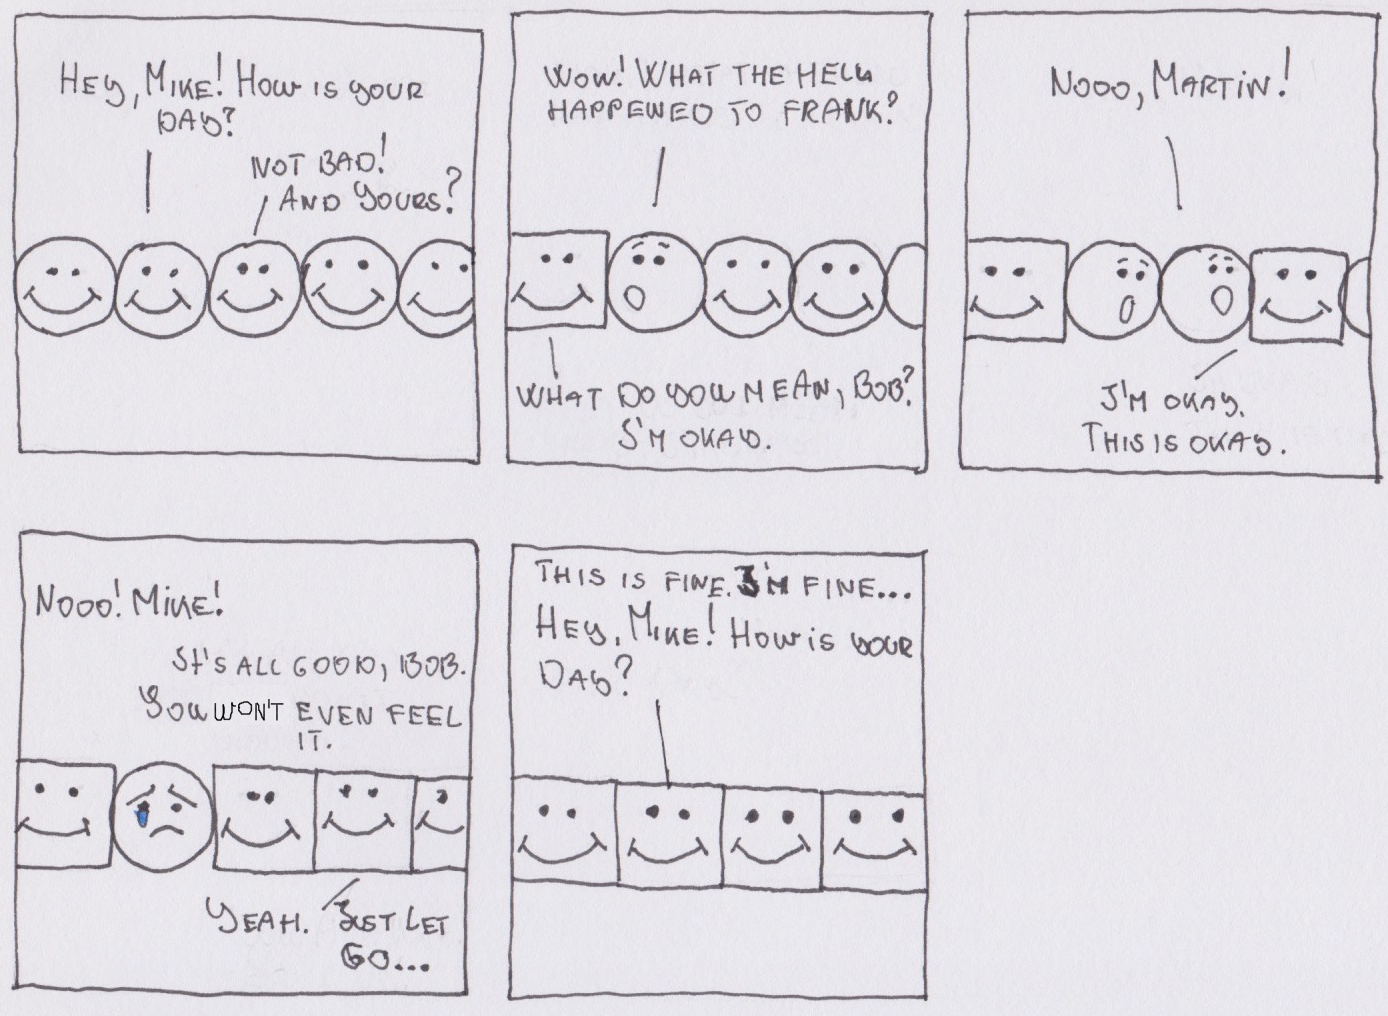 HEY, MIKE! HOW IS YOUR
DAY?
NOT BAD!
AND YOURS?
WOW! WHAT THE HELL
HAPPEWED TO FRANK?
WHAT DO YOU MEAN, BOB?
I'M OKAY.
NOOO, MARTIN!
I'M OKAY.
THIS IS OKAY.
NOOO! MIKE!
IT'S ALL GOOD, BOB.
YOU WON'T EVEN FEEL
IT.
YEAH. JUST LET
GO...
THIS IS FINE. I'M FINE...
HEY, MIKE! HOW IS YOUR
DAY?